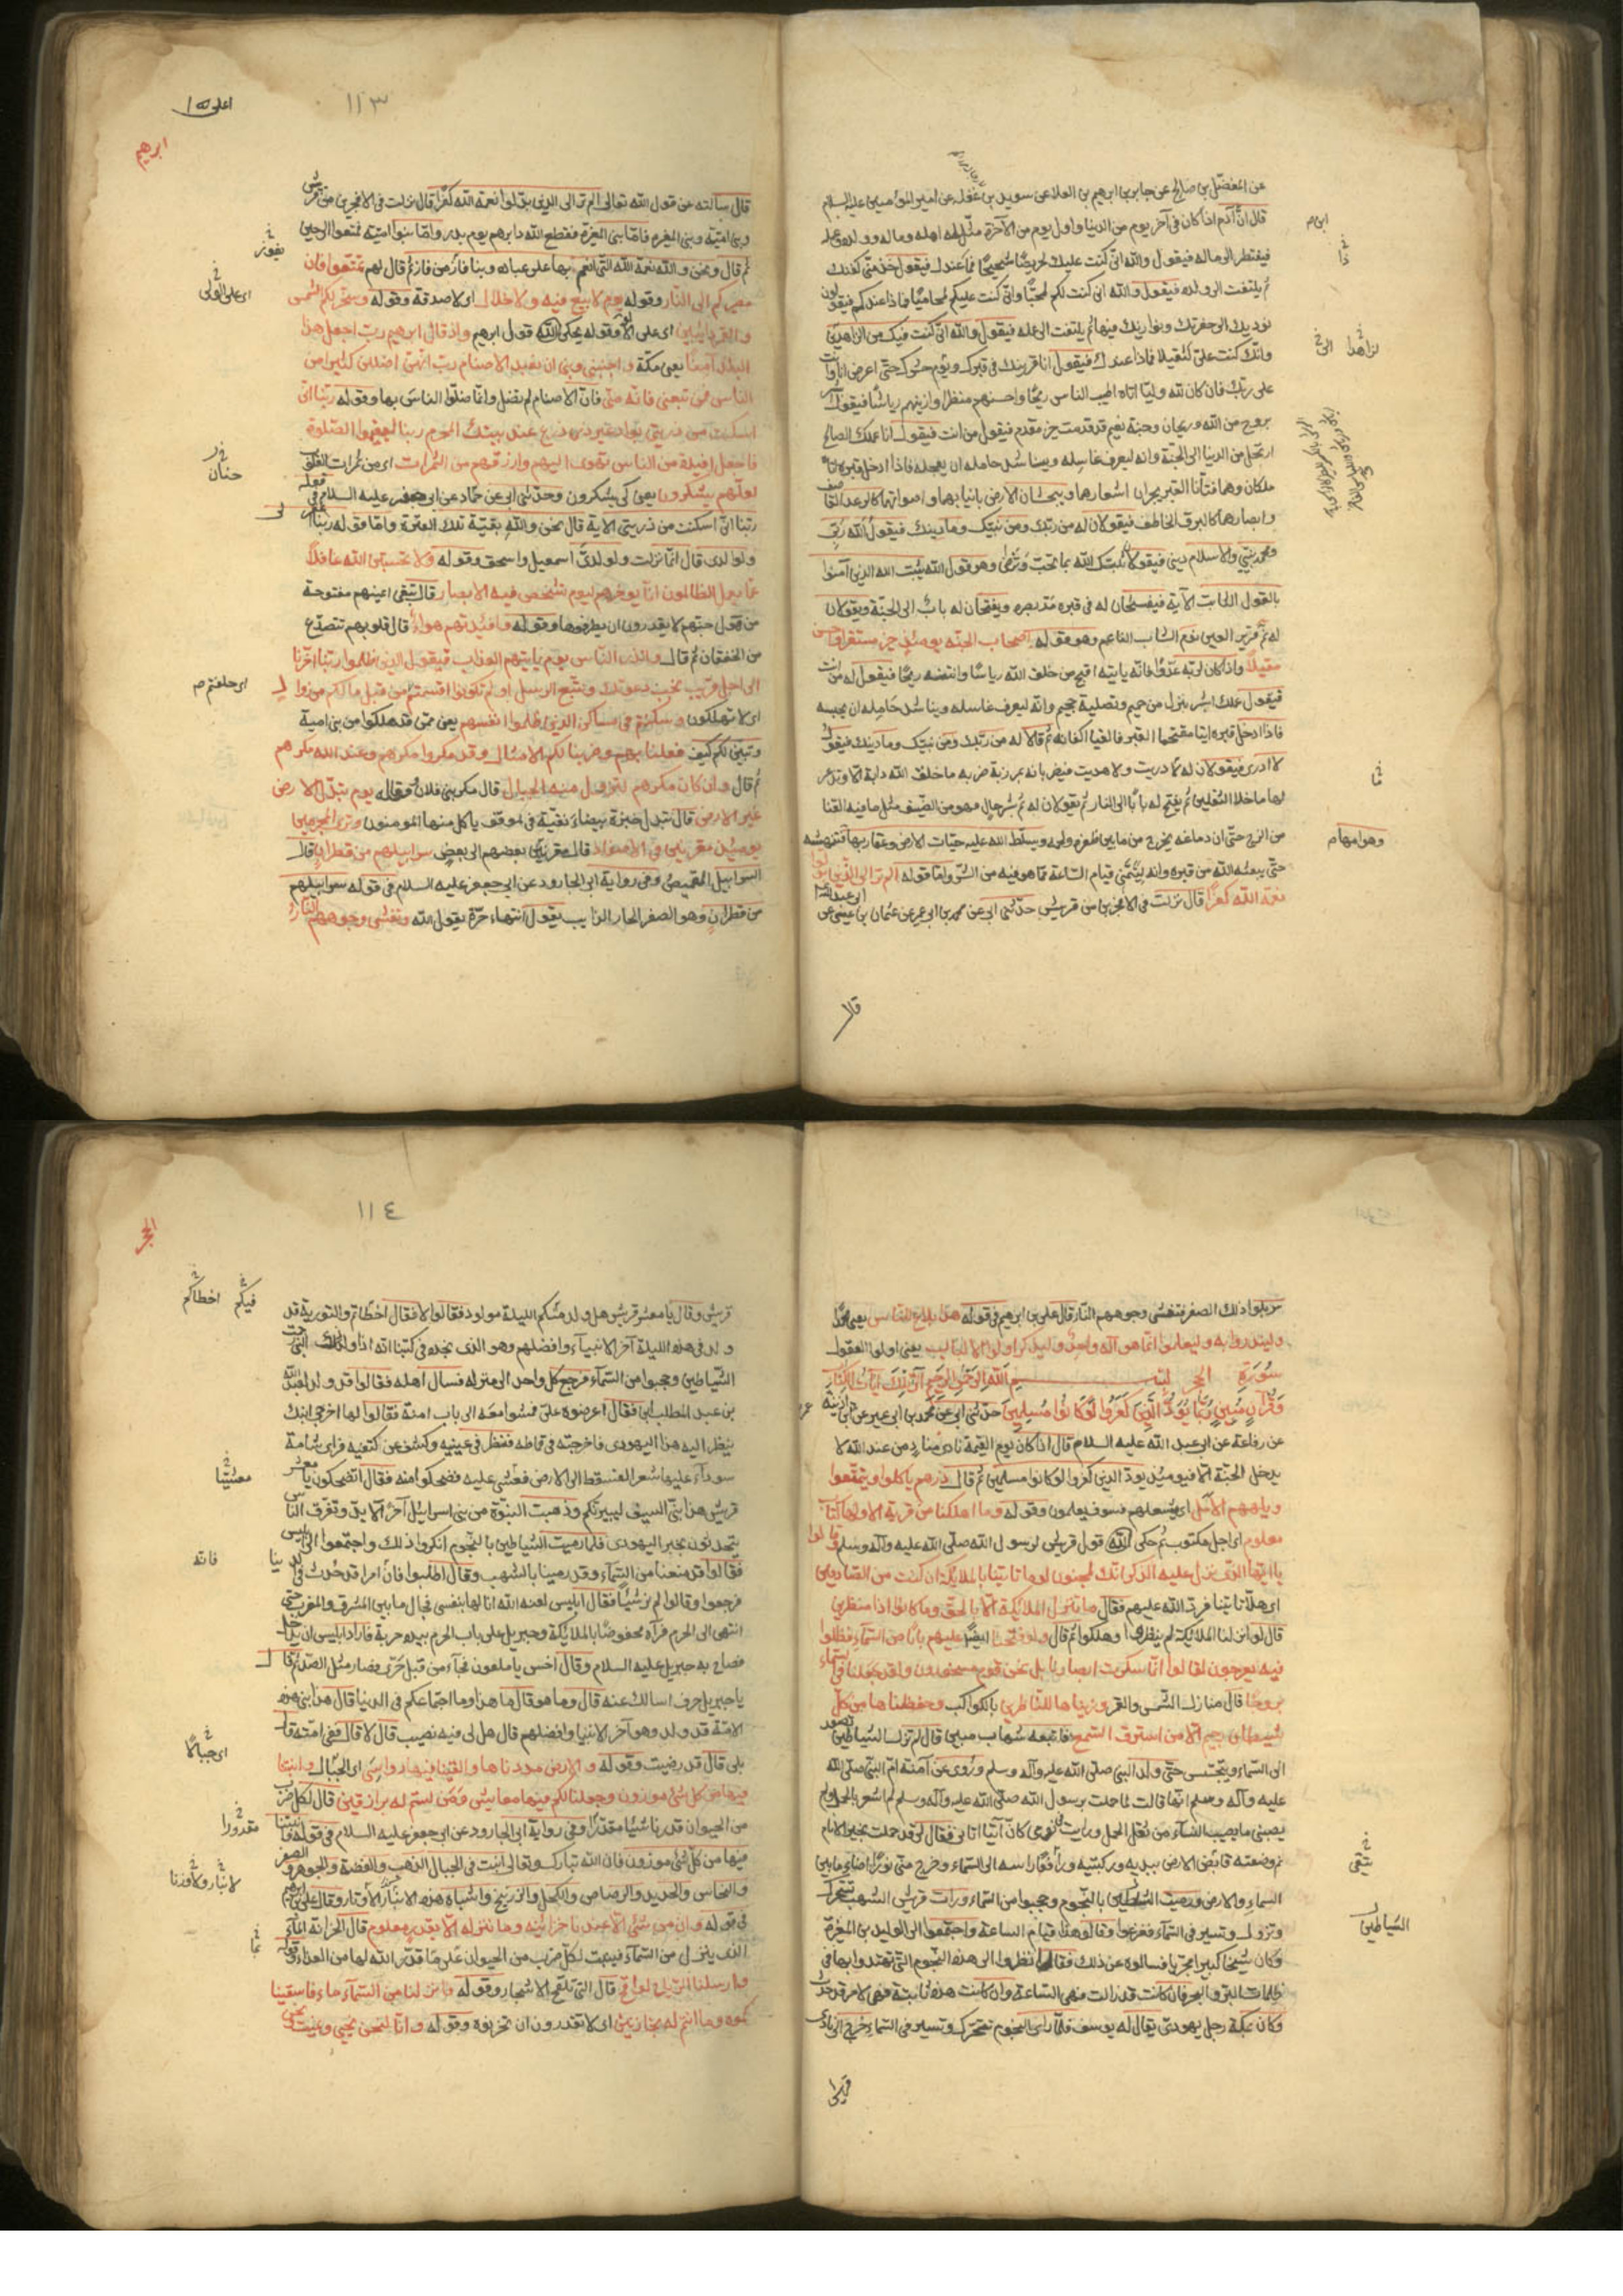 عن المفضّل بن صالح عن جابر بن ابرهيم بن العلا عن سويد بن غفله عن امير المؤمنين عليه السلام
قال انّ ابن آدم اذا كان في آخر يوم من الدنيا واول يوم من الآخرة مثّل له اهله وماله وولده وعمله
فيلتفت الى ماله فيقول والله انّى كنت عليك لحريصًا شحيحًا فما عندك فيقول خذ منّى كفنك
ثم يلتفت الى ولده فيقول والله انى كنت لكم لمحبًّا وانّى كنت عليكم لمحاميًا فماذا عندكم فيقولون
نوديك الى حفرتك ونواريك فيها ثم يلتفت الى عمله فيقول والله انّى كنت فيك من الزاهدين
وانّك كنت علىّ لثقيلا فماذا عندك فيقول انا قرينك في قبرك ويوم حشرك حتى اعرض انا وانت
على ربّك فان كان لله وليّا اتاه اطيب الناس ريحًا واحسنهم منظرا وازينهم رياشًا فيقول ابشر
بروح من الله وريحان وجنة نعيم قد قدمت خير مقدم فيقول من انت فيقول انا عملك الصالح
ارتحل من الدنيا الى الجنّة وانه ليعرف غاسله ويناشد حامله ان يعجله فاذا ادخل قبره اتاه
ملكان وهما فتّانا القبر يجران اشعارهما ويبحثان الارض بانيابهما واصواتهما كالرعد القاصف
وابصارهما كالبرق الخاطف فيقولان له من ربّك ومن نبيّك وما دينك فيقول الله ربّى
ومحمد نبيّى والاسلام دينى فيقولان ثبّتك الله بما تحبّ وترضى وهو قول الله يثبت الله الذين آمنوا
بالقول الثابت الآية فيفسحان له في قبره مدّ بصره ويفتحان له بابًا الى الجنّة ويقولان
له نم قرير العين نوم الشاب الناعم وهو قوله اصحاب الجنّه يومئذ خير مستقرا واحسن
مقيلاً واذا كان لربّه عدوّا فانّه ياتيه اقبح من خلق الله رياشًا وانتنه ريحًا فيقول له من انت
فيقول عملك ابشر بنزل من حميم وتصلية جحيم وانّه ليعرف غاسله ويناشد حامله ان يحبسه
فاذا ادخل قبره اتيا مقتحما القبر فالقيا اكفانه ثم قالا له من ربّك ومن نبيّك وما دينك فيقول
لا ادرى فيقولان له ما دريت ولا هديت فيضربانه بمرزبة ضربه ما خلق الله دابة الّا وتذعر
لها ما خلا الثقلين ثم يفتح له بابًا الى النار ثم يقولان له نم بشر حال فهو من الضيق مثل ما فيه القنا
من الزج حتى ان دماغه يخرج من ما بين ظفره ولحمه ويسلّط الله عليه حيّات الارض وعقاربها فتنهشه
حتّى يبعثه الله من قبره وانه ليتمنّى قيام الساعة مما هو فيه من الشر واما قوله الم تر الى الذين بدلوا
نعمة الله كفرًا قال نزلت في الافجرين من قريش حدّثنى ابى عن محمد بن ابى عمير عن عثمان بن عيسى عن
ابى عبد الله
ابن م
لزاهدا
وهوامها م
قال
١١٣
ابرهيم
قال سالته عن قول الله تعالى الم تر الى الذين بدّلوا نعمة الله كفرًا قال نزلت في الافجرين من قريش
وبنى اميّة وبنى المغيره فامّا بنى المغيرة فقطع الله دابرهم يوم بدر وامّا بنوا اميّة فمتعوا الى حين
ثم قال ونحن والله نعمة الله التى انعم بها على عباده وبنا فاز من فاز ثم قال لهم تمتّعوا فان
مصيركم الى النّار وقوله يوم لا بيع فيه ولا خلال اى لا صدقة وقوله وسخّر لكم الشمس
والقمر دائبين اى على الولاء وقوله يحكى الله قول ابرهيم واذ قال ابرهيم رب اجعل هذا
البلد آمنًا يعنى مكّة واجنبنى وبنى ان نعبد الاصنام رب انّهنّ اضللن كثيرا من
الناس فمن تبعنى فانّه منّى فانّ الاصنام لم تضل وانّما ضلّوا الناس بها وقوله ربّنا انّى
اسكنت من ذريتى بواد غير ذى زرع عند بيتك المحرم ربنا ليقيموا الصّلوة
فاجعل افئدة من الناس تهوى اليهم وارزقهم من الثمرات اى من ثمرات القلوب
لعلّهم يشكرون يعنى كى يشكرون وحدّثنى ابى عن حمّاد عن ابى جعفر عليه السلام في قوله
ربّنا انّى اسكنت من ذريتى الاية قال نحن والله بقيّة تلك العترة وامّا قوله ربّنا اغفر لى
ولوالدى قال انّما نزلت ولولدىّ اسمعيل واسحق وقوله ولا تحسبنّ الله غافلاً
عمّا يعمل الظالمون انّما يؤخرهم ليوم تشخص فيه الابصار قال تبقى اعينهم مفتوحة
من هول جهنّم لا يقدرون ان يطرفوها وقوله وافئدتهم هواءٌ قال قلوبهم تتصدّع
من الخفقان ثم قال وانذر النّاس يوم ياتيهم العذاب فيقول الذين ظلموا ربّنا اخّرنا
الى اجل قريب نجب دعوتك ونتّبع الرسل اولم تكونوا اقسمتم من قبل ما لكم من زوال
اى لا تهلكون وسكنتم في مساكن الذين ظلموا انفسهم يعنى ممّن قد هلكوا من بنى امية
وتبيّن لكم كيف فعلنا بهم وضربنا لكم الامثال وقد مكروا مكرهم وعند الله مكرهم
ثم قال وان كان مكرهم لتزول منه الجبال قال مكر بنى فلان وقوله يوم تبدّل الارض
غير الارض قال تبدل خبزة بيضاء نقيّة في الموقف ياكل منها المؤمنون وترى المجرمين
يومئذ مقرنين في الاصفاد قال مقرنين بعضهم الى بعض سرابيلهم من قطران قال
السرابيل القميص وفي رواية ابى الجارود عن ابى جعفر عليه السلام في قوله سرابيلهم
من قطران وهو الصفر الحار الذايب يقول انتهاء حرّه يقول الله وتغشى وجوههم النّار
يفوز
اى على الولى
حنان
اى حلفتم م
سربلوا ذلك الصفر فتغشى وجوههم النّار قال على بن ابرهيم في قوله هذا بلاغ للناس يعنى محمّدا
ولينذروا به وليعلموا انّما هو اله واحد وليذّكر اولوا الالباب يعنى اولوا العقول
سورة الحجر بسم الله الرحمن الرحيم الر تلك ايات الكتاب
وقرآن مبين ربما يودّ الّذين كفروا لو كانوا مسلمين حدّثنى ابى عن محمد بن ابى عمير عن ابن اذينة
عن رفاعة عن ابى عبد الله عليه السلام قال اذا كان يوم القيمة نادى منادٍ من عند الله لا
يدخل الجنّة الا مسلم فيومئذ يودّ الذين كفروا لو كانوا مسلمين ثم قال ذرهم ياكلوا ويتمتّعوا
ويلههم الامل اى يشغلهم فسوف يعلمون وقوله وما اهلكنا من قرية الا ولها كتاب
معلوم اى اجل مكتوب ثم حكى الله قول قريش لرسول الله صلّى الله عليه وآله وسلم وقالوا
يا ايّها الذى نزل عليه الذكر انّك لمجنون لو ما تاتينا بالملائكة ان كنت من الصادقين
اى هلّا تاتينا فردّ الله عليهم فقال ما ننزل الملائكة الّا بالحق وما كانوا اذا منظرين
قال لو انزلنا الملائكة لم ينظروا وهلكوا ثم قال ولو فتحنا ايضًا عليهم بابًا من السّماء فظلوا
فيه يعرجون لقالوا انّما سكرت ابصارنا بل نحن قوم مسحورون ولقد جعلنا في السماء
بروجًا قال منازل الشمس والقمر وزيناها للنّاظرين بالكواكب وحفظناها من كلّ
شيطان رجيم الّا من استرق السّمع فاتبعه شهاب مبين قال لم تزل الشياطين تصعد
الى السّماء وتتجسس حتّى ولد النبى صلّى الله عليه وآله وسلم وروى عن آمنة ام النبى صلّى الله
عليه وآله وسلم انّها قالت لما حملت برسول الله صلّى الله عليه وآله وسلم لم اشعر بالحمل ولم
يصبنى ما يصيب النساء من ثقل الحمل ورايت في نومى كانّ آتيًا اتانى فقال لى قد حملت بخير الانام
ثم وضعته فاتقى الارض بيديه وركبتيه ورافعًا راسه الى السّماء وخرج منّى نورًا اضاء ما بين
السماء والارض ورميت الشياطين بالنّجوم وحجبوا من السّماء ورات قريش الشهب تتحرك
وتزول وتسير في السّماء ففزعوا وقالوا هذا قيام الساعة واجتمعوا الى الوليد بن المغيرة
وكان شيخًا كبيرا مجربا فسالوه عن ذلك فقال انظروا الى هذه النّجوم التى تهتدوا بها في
ظلمات البر والبحر فان كانت قد زالت فهى السّاعة وان كانت هذه ثابتة فهى لامر قد حدث
وكان بمكّة رجل يهودى يقال له يوسف فلمّا راى النجوم تتحرك وتسير في السّماء خرج الى نادى
يتّقى
الشياطين
١١٤
الحجر
قريش وقال يا معشر قريش هل ولد منكم الليلة مولود فقالوا لا فقال اخطاتم والتورية قد
ولد في هذه الليلة آخر الانبياء وافضلهم وهو الذى نجده في كتبنا انه اذا ولد ذلك النبى رجمت
الشّياطين وحجبوا من السّماء فرجع كل واحد الى منزله فسال اهله فقالوا قد ولد لعبد الله
بن عبد المطلب ابن فقال اعرضوه علىّ فمشوا معه الى باب امنة فقالوا لها اخرجى ابنك
ينظر اليه هذا اليهودى فاخرجته في قماطه فنظر في عينيه وكشف عن كتفيه فراى شامة
سوداء عليها شعر فسقط الى الارض فغشى عليه فضحكوا منه فقال اتضحكون يا معشر
قريش هذا نبىّ السيف ليبيرنّكم وذهبت النبوّة من بنى اسرائيل آخر الابد وتفرق الناس
يتحدثون بخبر اليهودى فلما رميت الشياطين بالنّجوم انكروا ذلك واجتمعوا الى ابليس
فقالوا قد منعنا من السّماء وقد رمينا بالشهب وقال اطلبوا فانّ امرا قد حدث في الدنيا
فرجعوا وقالوا لم نر شيئًا فقال ابليس لعنه الله انا لها بنفسى فجال ما بين المشرق والمغرب حتى
انتهى الى الحرم فرآه محفوفًا بالملائكة وجبريل على باب الحرم بيده حربة فاراد ابليس ان يدخل
فصاح به جبريل عليه السلام وقال اخس يا ملعون فجاء من قبل حرى فصار مثل الصّر ثم قال
يا جبريل حرف اسالك عنه قال وما هو قال ما هذا وما اجتماعكم في الدنيا قال هذا نبى هذه
الامّة قد ولد وهو آخر الانبيا وافضلهم قال هل لى فيه نصيب قال لا قال ففى امّته قال
بلى قال قد رضيت وقوله والارض مددناها والقينا فيها رواسى اى الجبال وانبتنا
فيها من كل شئ موزون وجعلنا لكم فيها معايش ومن لستم له برازقين قال لكل ضرب
من الحيوان قدرنا شيئًا مقدّرًا وفي رواية ابى الجارود عن ابى جعفر عليه السلام في قوله وانبتنا
فيها من كلّ شئ موزون فان الله تبارك وتعالى انبت في الجبال الذهب والفضة والجوهر والصفر
والنحاس والحديد والرصاص والكحل والزرنيخ واشباه هذه
في قوله وان من شئ الا عندنا خزائنه وما ننزله الا بقدر معلوم قال الخزانة الماء
الذى ينزل من السّماء فينبت لكلّ ضرب من الحيوان على ما قدّر الله لها من الغذاء وقوله
وارسلنا الرّياح لواقح قال التى تلقح الاشجار وقوله وانزلنا من السّماء ماء فاسقينا
كموه وما انتم له بخازنين اى لا تقدرون ان تخزنوه وقوله وانّا لنحن نحيى ونميت
فيكم
اخطاكم
فانّه
اى جبالًا
مقدورا